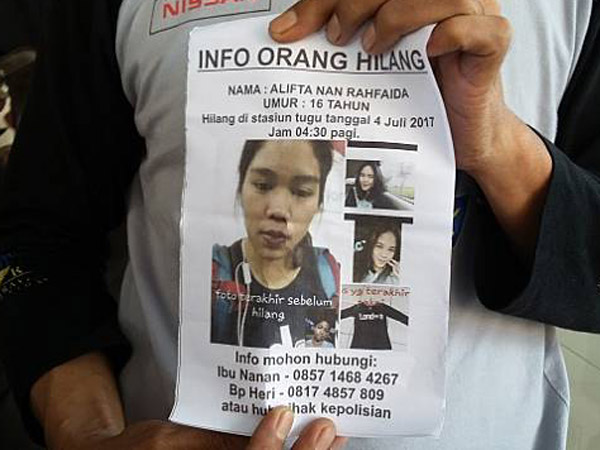 NISSAN
INFO ORANG HILANG
NAMA : ALIFTA NAN RAHFAIDA
UMUR : 16 TAHUN
Hilang di stasiun tugu tanggal 4 Juli 2017
Jam 04:30 pagi.
foto terakhir sebelum
hilang
s yg terakhir
London
Info mohon hubungi:
Ibu Nanan - 0857 1468 4267
Bp Heri - 0817 4857 809
atau hub pihak kepolisian